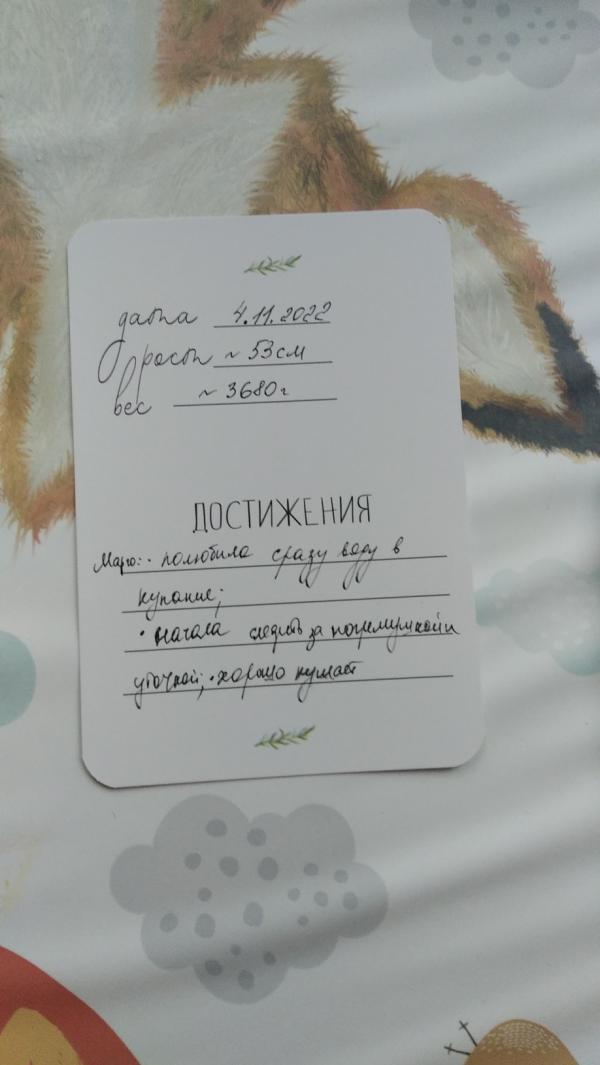 дата 4.11.2022
рост ~ 53 см
вес ~ 3680 г
ДОСТИЖЕНИЯ
Марго: · полюбила сразу воду в
купание;
· начала следить за погремушкой и
уточкой; · хорошо кушает